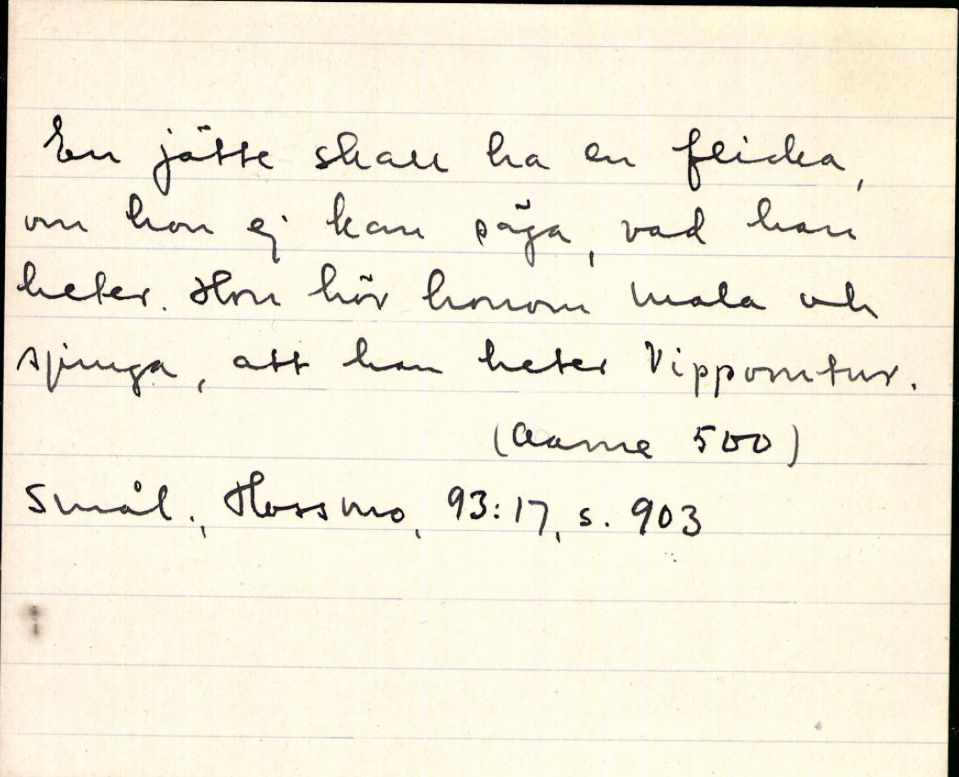 En jätte skall ha en flicka,
om hon ej kan säga, vad han
heter. Hon hör honom mala och
sjunga, att han heter Vippomtur.
(Aarne 500)
Smål., Hossmo, 93:17, s. 903